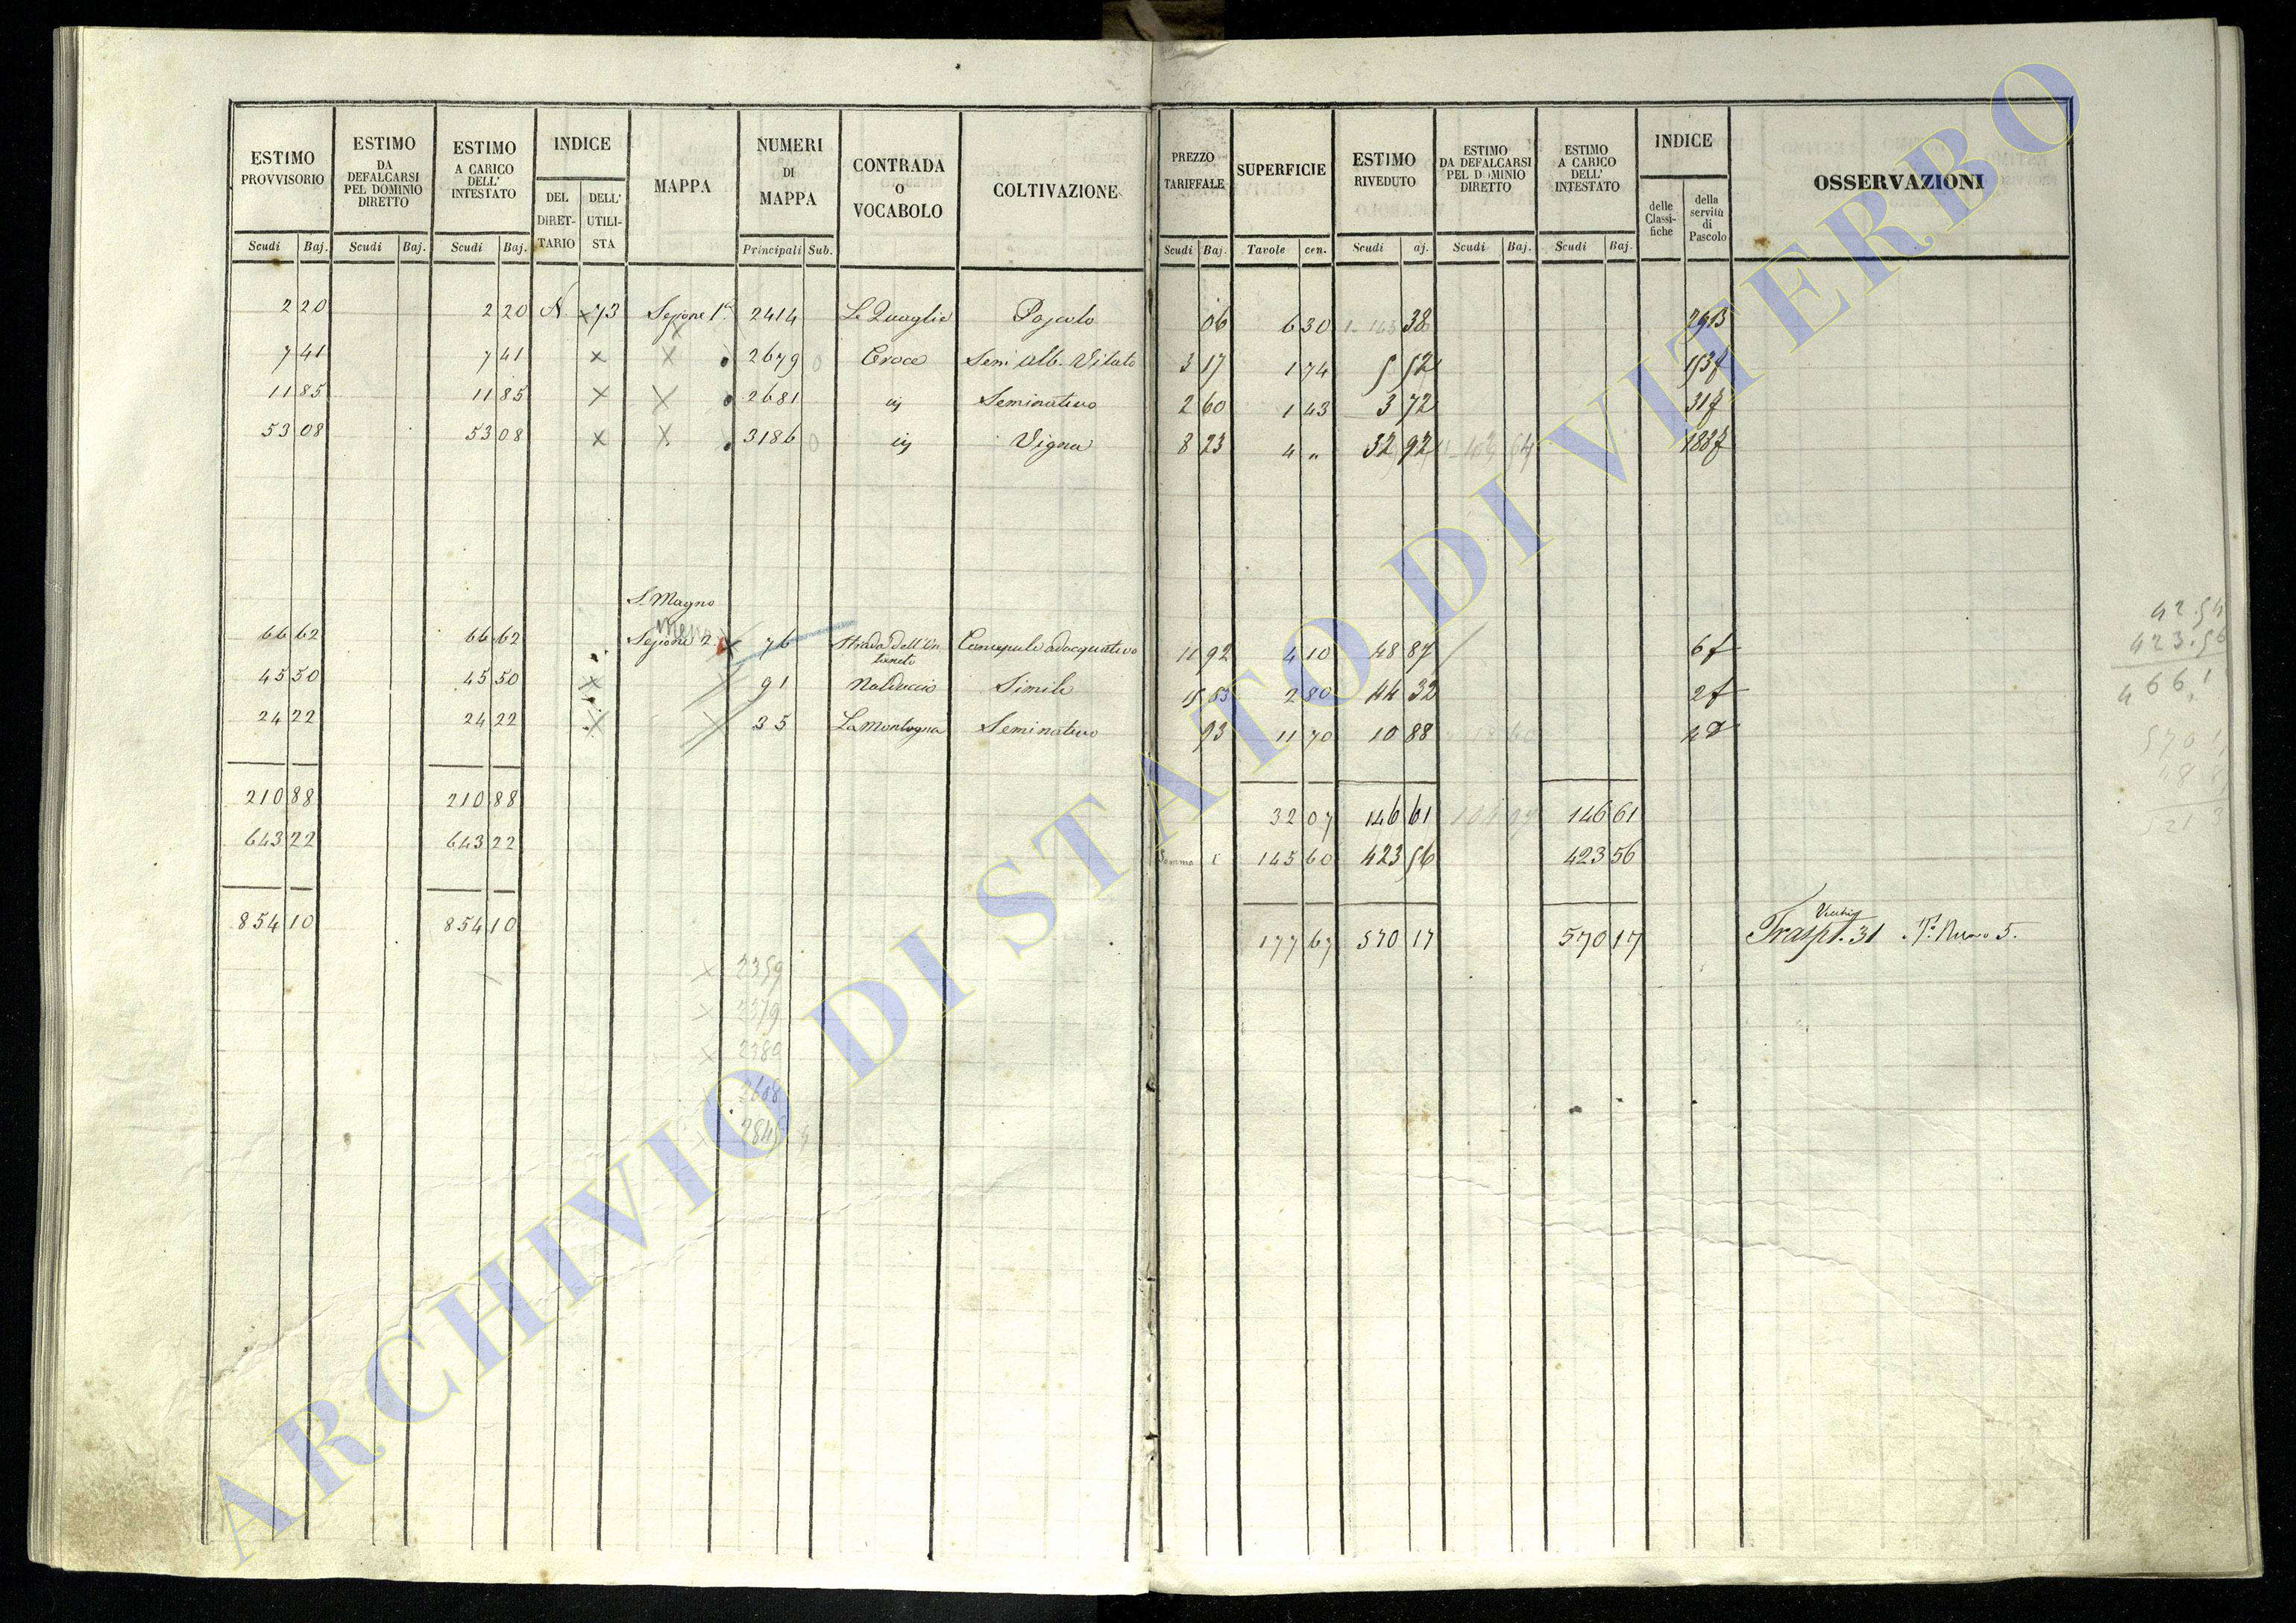 ESTIMO PROVVISORIO
Scudi Baj.
ESTIMO DA DEFALCARSI PEL DOMINIO DIRETTO
Scudi Baj.
ESTIMO A CARICO DELL' INTESTATO
Scudi Baj.
INDICE
DEL DIRET-TARIO
DELL' UTILI-STA
MAPPA
NUMERI DI MAPPA
Principali Sub.
CONTRADA O VOCABOLO
COLTIVAZIONE
PREZZO TARIFFALE
Scudi Baj.
SUPERFICIE
Tavole cen.
ESTIMO RIVEDUTO
Scudi aj.
ESTIMO DA DEFALCARSI PEL DOMINIO DIRETTO
Scudi Baj.
ESTIMO A CARICO DELL' INTESTATO
Scudi Baj.
INDICE
delle Classi-fiche
della servitù di Pascolo
OSSERVAZIONI
2 20 2 20 N. x 73 Sezione 1ª 2414 Le Quaglie Pascolo 06 6 30 38 29B
7 41 7 41 x x 2679 0 Croce Sem. Alb. Vitato 3 17 1 74 5 52 153f
11 85 11 85 x x 2681 Seminativo 2 60 1 43 3 72 31f
53 08 53 08 x x 3186 0 Vigna 8 23 4 " 32 92 183f
S. Magno
66 62 66 62 Sezione 2. x 76 Strada dell' Canapule adacquativo 11 92 4 10 48 87 6f
45 50 45 50 x x 91 Simile 15 83 2 80 44 32 2f
24 22 24 22 x x 35 La Montagna Seminativo 93 11 70 10 88
210 88 210 88 32 07 146 61 146 61
643 22 643 22 Somma 145 60 423 56 423 56
854 10 854 10 177 67 570 17 570 17 Trasp.t. 31 Nuovo 5.
Vecchio
x 2359
x 2379
x 2389
2608
42.54
423.56
466,1
ARCHIVIO DI STATO DI VITERBO